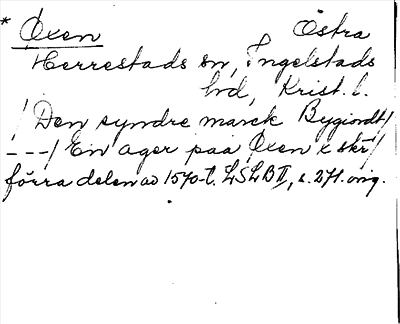 * Öxen Östra
Herrestads sn, Ingelstads
hd, Krist. l.
/ Den syndre marck Bygiordt /
---/ En ager paa Öxen x skr/
förra delen av 1570-t. LSLB II, s. 271. orig.